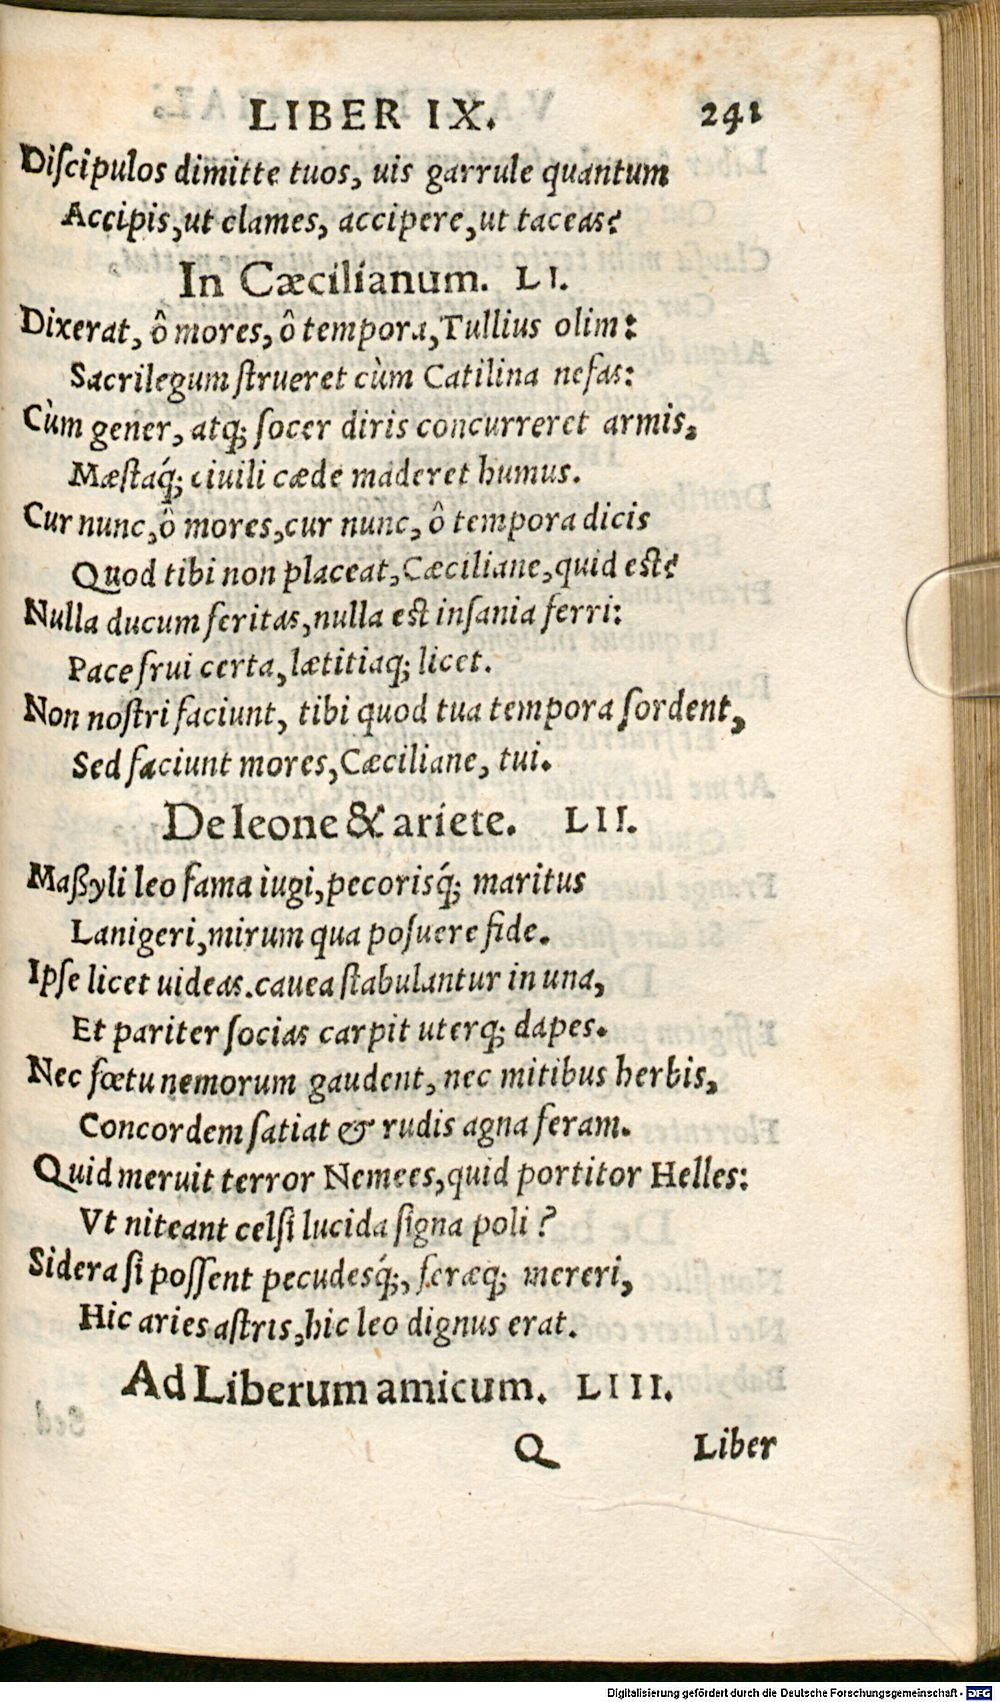 LIBER IX. 241
Diſcipulos dimitte tuos, uis garrule quantum
Accipis, ut clames, accipere, ut taceas?
In Cæcilianum. LI.
Dixerat, ô mores, ô tempora, Tullius olim:
Sacrilegum ſtrueret cùm Catilina nefas:
Cùm gener, atq; ſocer diris concurreret armis,
Mæſtaq́; ciuili cæde maderet humus.
Cur nunc, ô mores, cur nunc, ô tempora dicis
Quod tibi non placeat, Cæciliane, quid est?
Nulla ducum feritas, nulla est inſania ferri:
Pace frui certa, lætitiaq; licet.
Non noſtri faciunt, tibi quod tua tempora ſordent,
Sed faciunt mores, Cæciliane, tui.
De leone & ariete. LII.
Maßyli leo fama iugi, pecorisq́; maritus
Lanigeri, mirum qua poſuere fide.
Ipſe licet uideas. cauea ſtabulantur in una,
Et pariter ſocias carpit uterq; dapes.
Nec fœtu nemorum gaudent, nec mitibus herbis,
Concordem ſatiat & rudis agna feram.
Quid meruit terror Nemees, quid portitor Helles:
Vt niteant celſi lucida ſigna poli?
Sidera ſi poſſent pecudesq́;, feræq; mereri,
Hic aries aſtris, hic leo dignus erat.
Ad Liberum amicum. LIII.
Q Liber
Digitalisierung gefördert durch die Deutsche Forschungsgemeinschaft - DFG